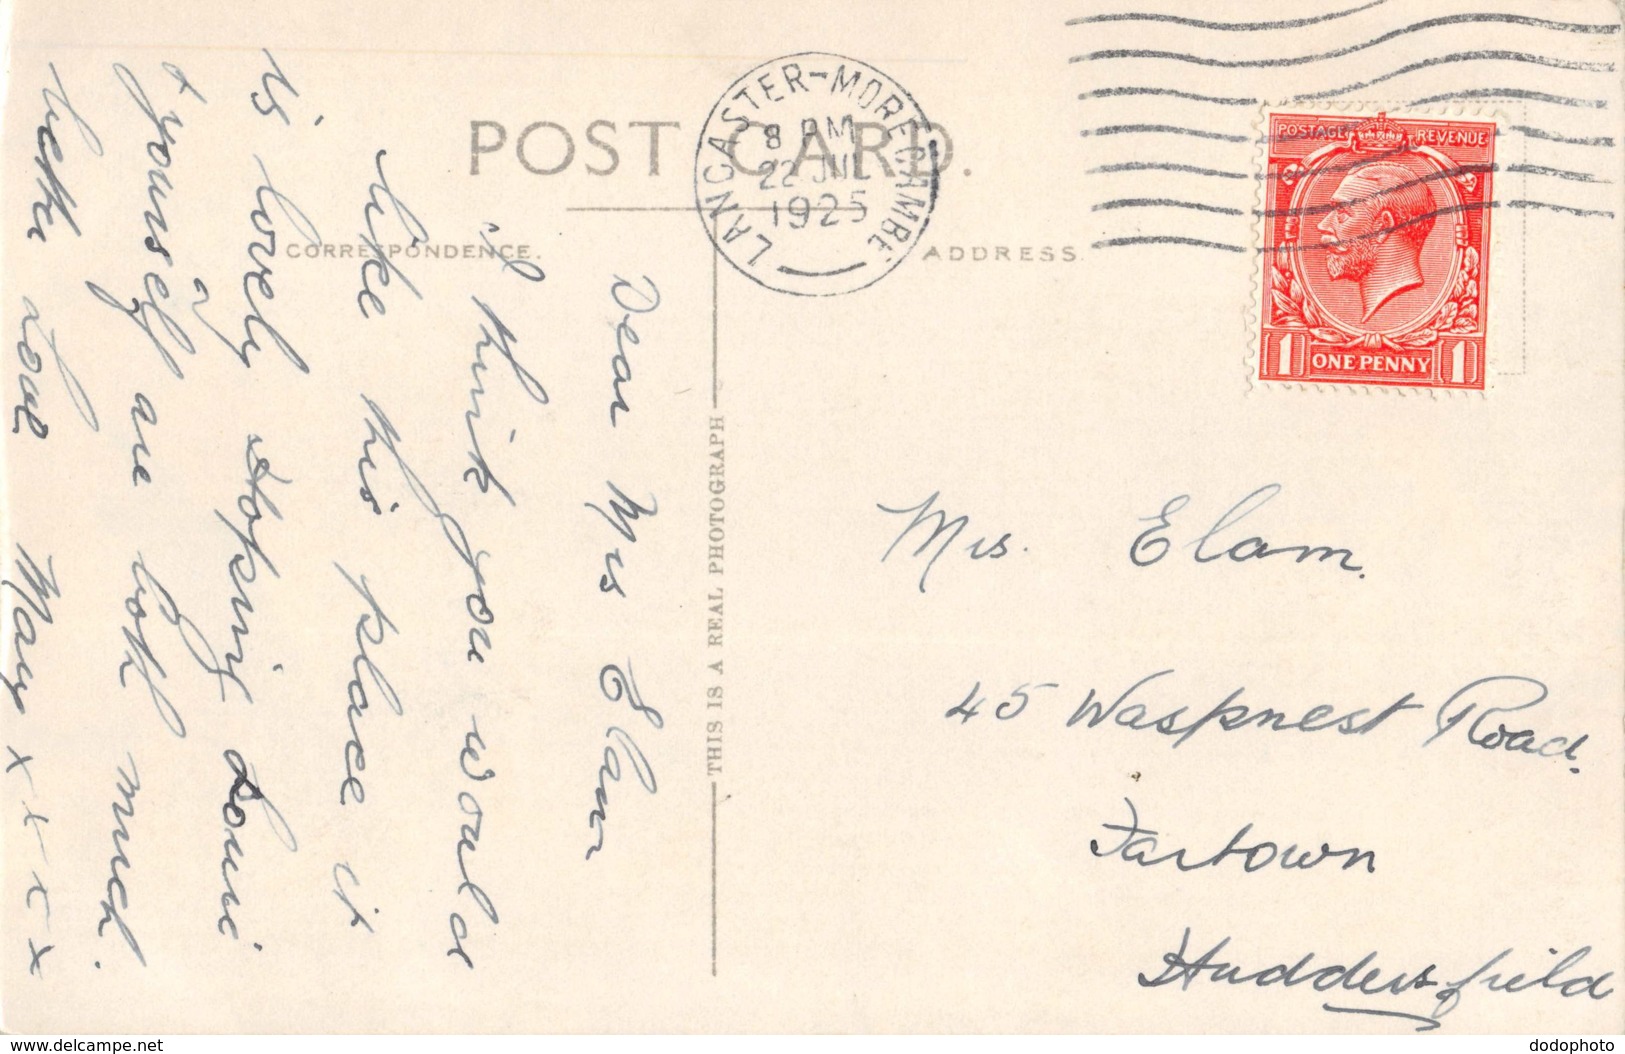 POST CARD.
CORRESPONDENCE.
ADDRESS.
THIS IS A REAL PHOTOGRAPH
LANCASTER-MORECAMBE
8 PM
22 JUL
1925
POSTAGE REVENUE
1 ONE PENNY 1
Dear Mrs Elam
I think you would
like this place it
is lovely Hoping Louie
+ yourself are both much
better Love May x x x x
Mrs. Elam.
45 Waspnest Road.
Fartown
Huddersfield
delcampe.net
dodophoto